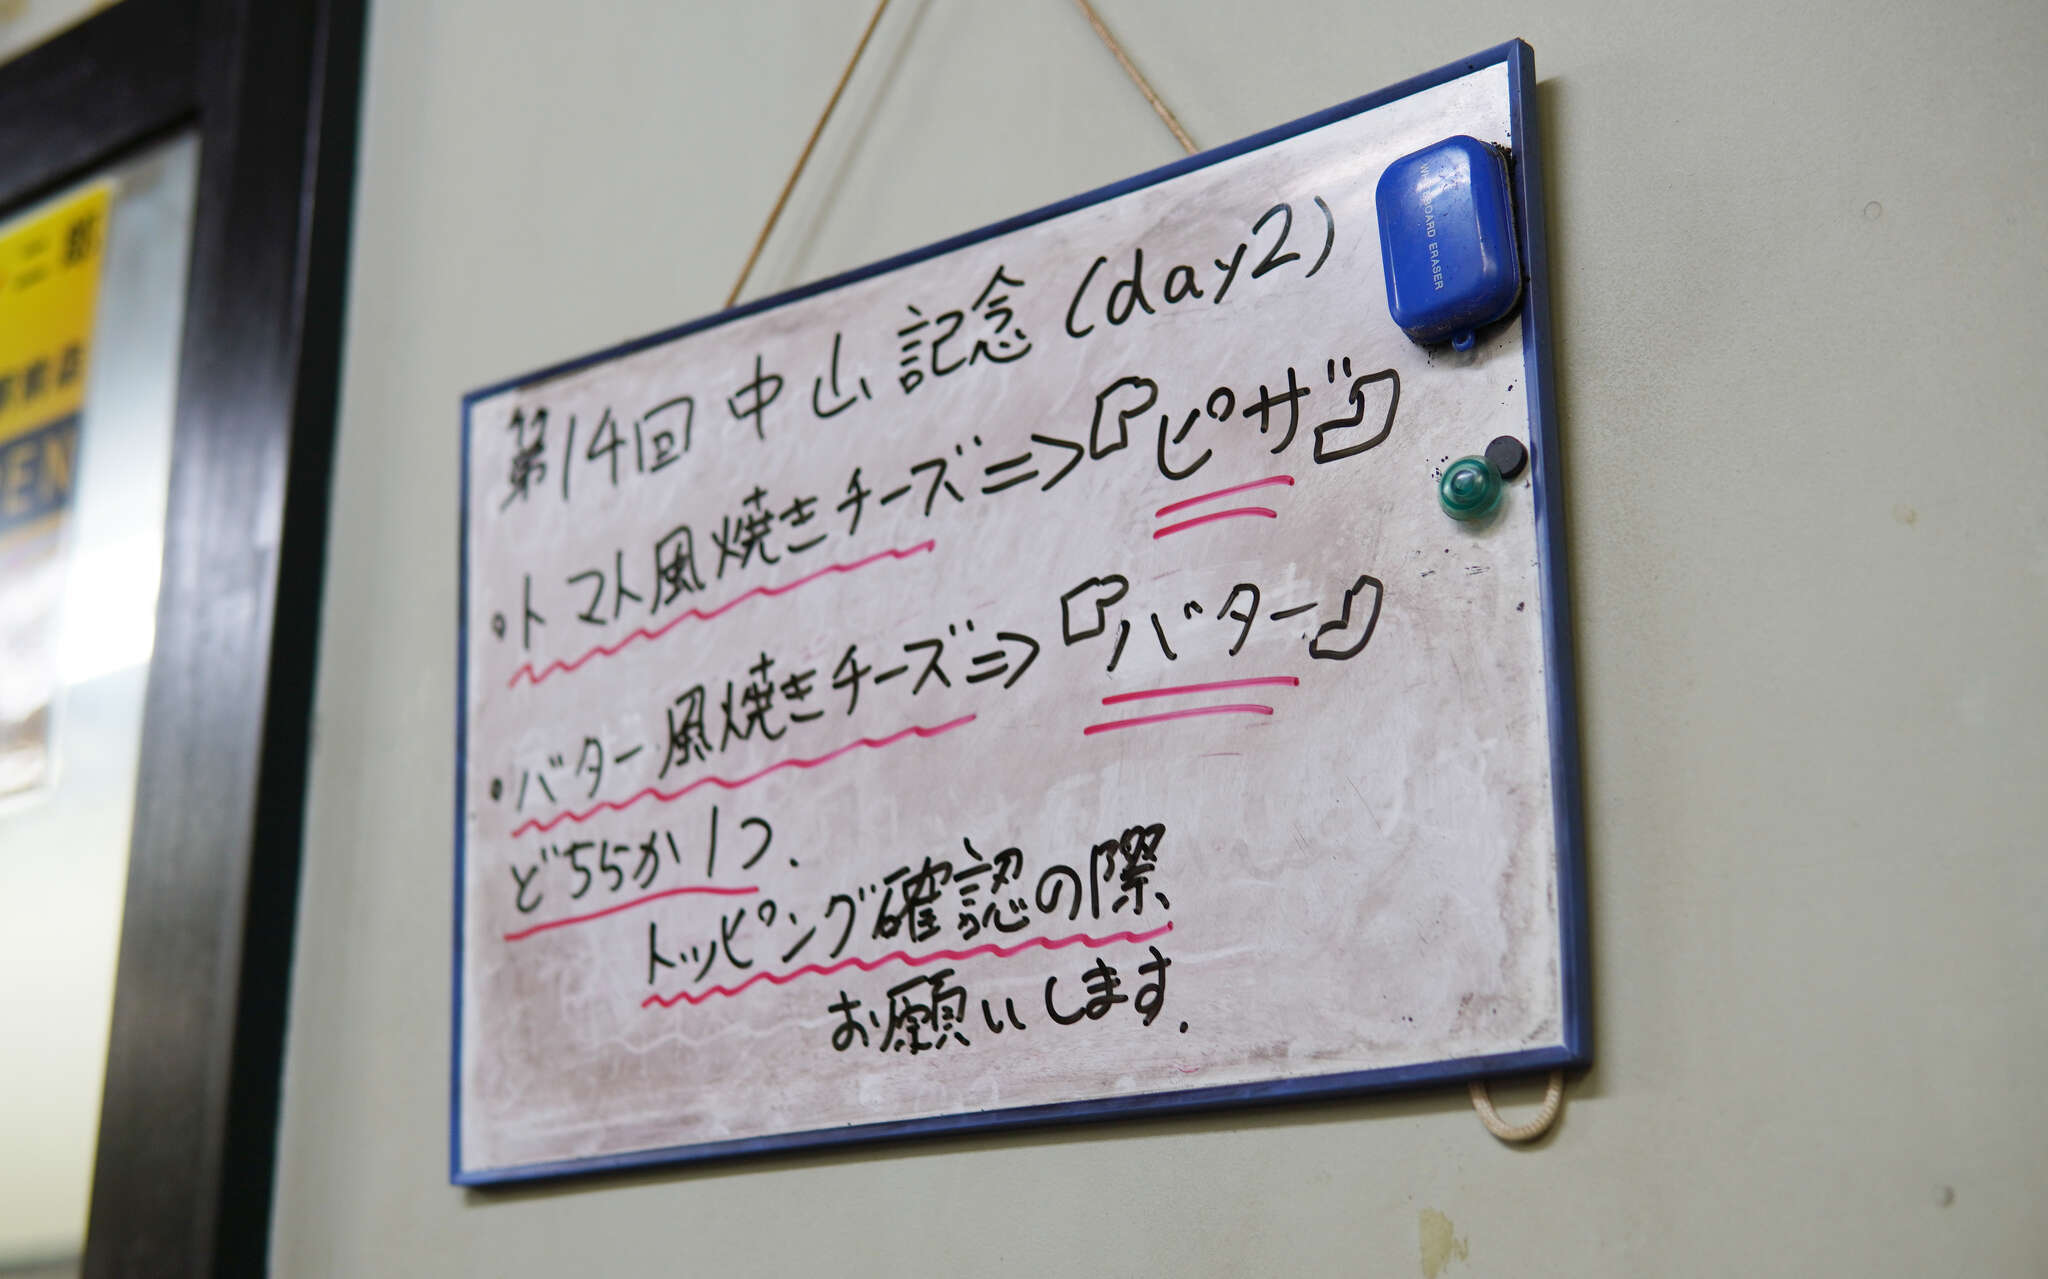 第14回 中山記念(day2)
・トマト風焼きチーズ=>『ピザ』
・バター風焼きチーズ=>『バター』
どちらか1つ.
トッピング確認の際
お願いします.
WHITEBOARD ERASER